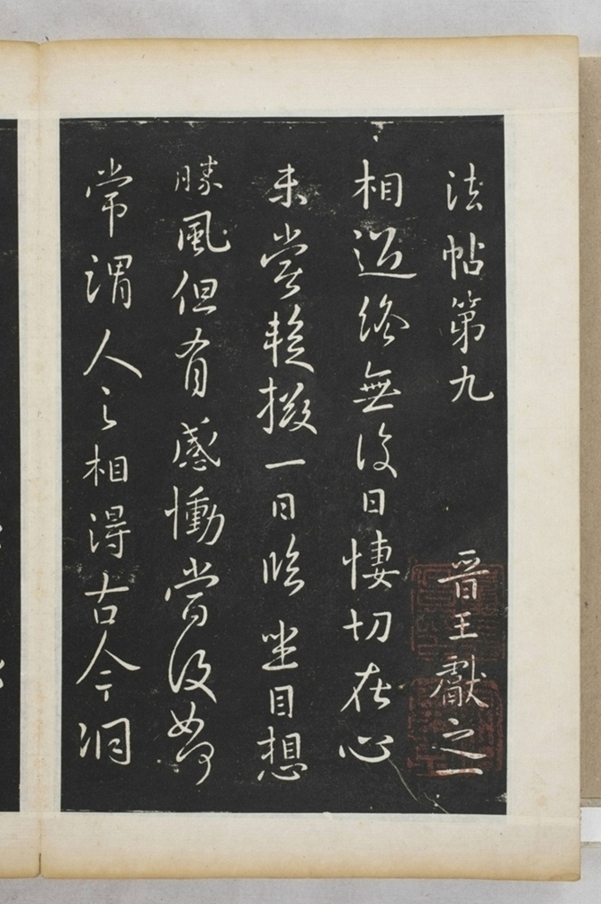 法帖第九 晋王獻之一
相迎終無復日悽切在心
未嘗輟掇一日臨坐目想
勝風但有感慟當復如何
常謂人之相得古今洞